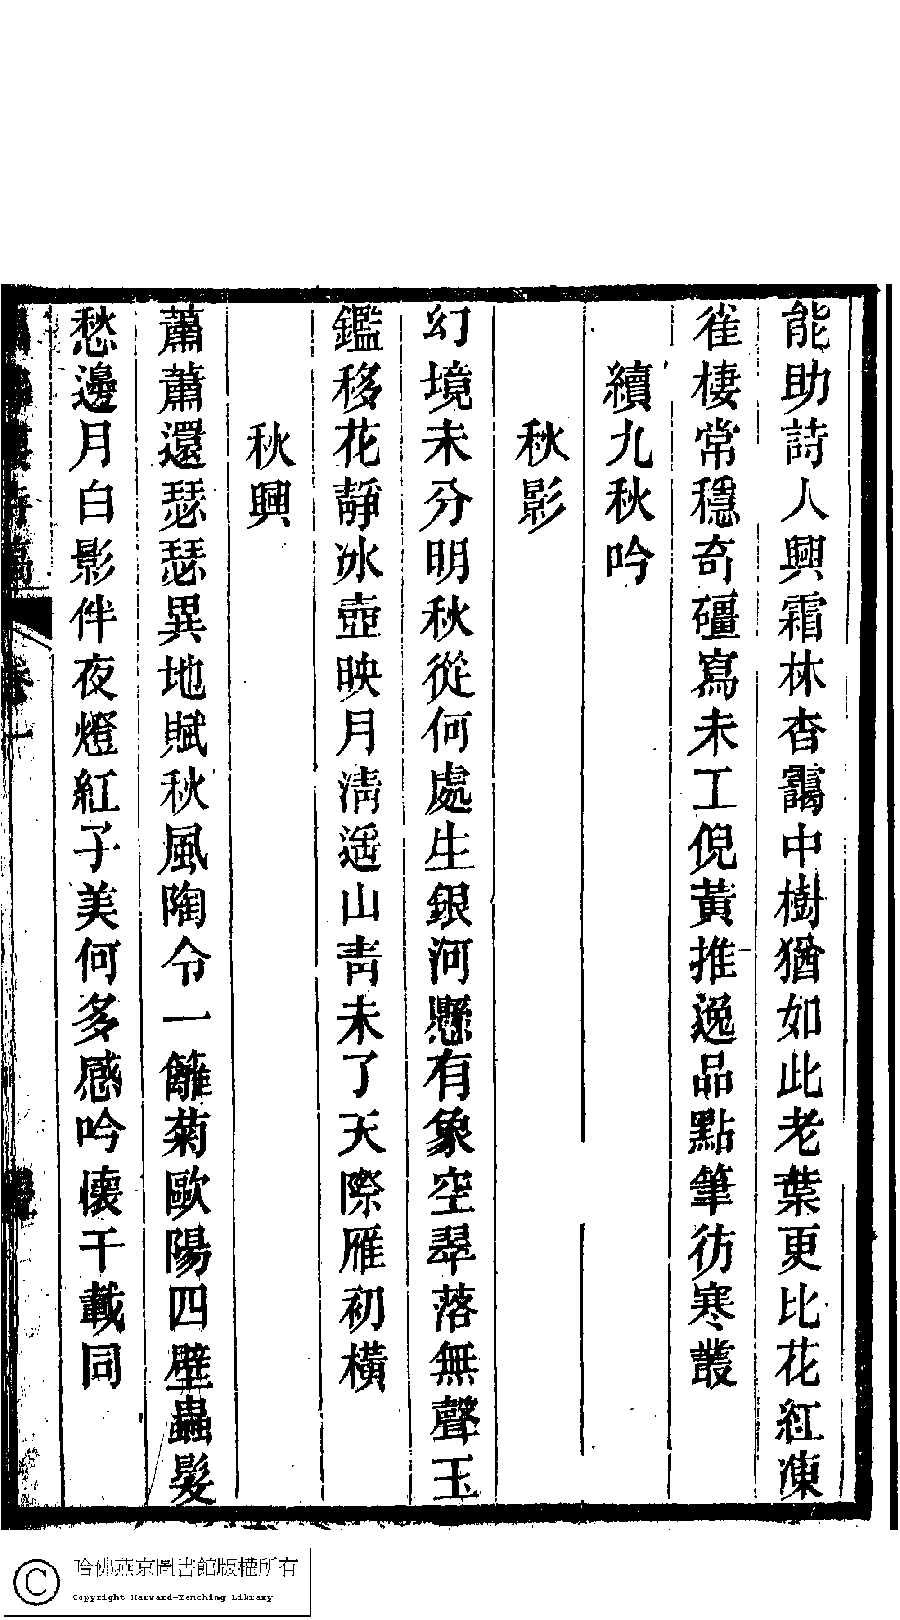 能助詩人興霜林杳靄中樹猶如此老葉更比花紅凍
雀棲常穩奇礓寫未工倪黃推逸品點筆彷寒叢
續九秋吟
秋影
幻境未分明秋從何處生銀河懸有象空翠落無聲玉
鑑移花靜冰壺映月清遥山青未了天際雁初橫
秋興
蕭蕭還瑟瑟異地賦秋風陶令一籬菊歐陽四壁蟲髮
愁邊月白影伴夜燈紅子美何多感吟懷千載同
卷一
哈佛燕京圖書館版權所有
Copyright Harvard-Yenching Library